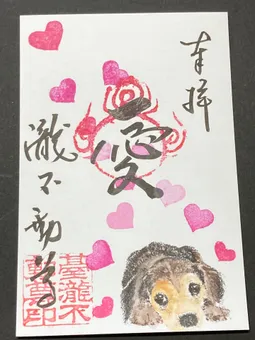 奉拝
愛
瀧不動尊
瀧不
動尊印